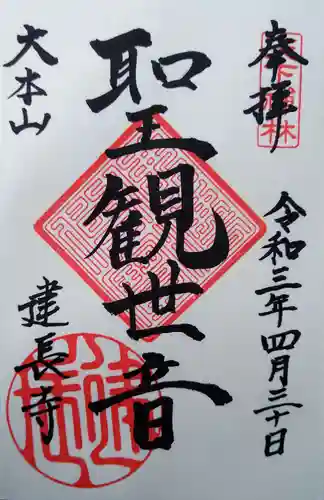 奉拝
令和三年四月三十日
聖観世音
大本山
建長寺